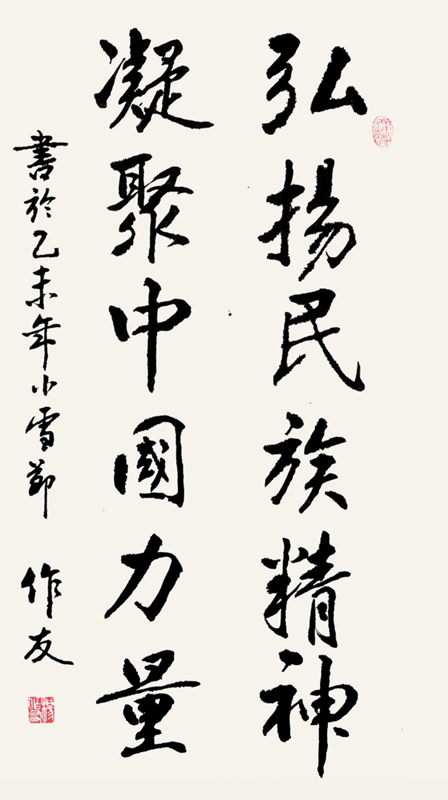 弘揚民族精神
凝聚中國力量
書於乙未年小雪節
作友